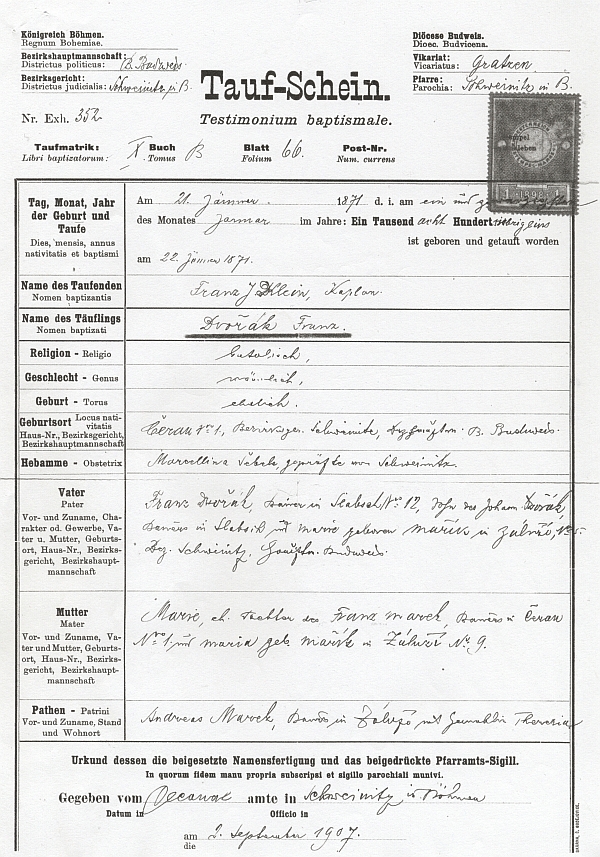 Königreich Böhmen.
Regnum Bohemiae.
Bezirkshauptmannschaft: B. Budweis
Districtus politicus:
Bezirksgericht: Schweinitz in B.
Districtus judicialis:
Nr. Exh. 352
Diöcese Budweis.
Dioec. Budvicena.
Vikariat: Gratzen
Vicariatus:
Pfarre: Schweinitz in B.
Parochia:
Tauf-Schein.
Testimonium baptismale.
1 1898 1
Taufmatrik: X Buch B Blatt 66. Post-Nr.
Libri baptizatorum: Tomus Folium Num. currens
Tag, Monat, Jahr
der Geburt und
Taufe
Dies, mensis, annus
nativitatis et baptismi
Am 21. Jänner 1871 d. i. am ein und
des Monates Januar im Jahre: Ein Tausend acht Hundert
ist geboren und getauft worden
am 22. Jänner 1871.
Name des Taufenden
Nomen baptizantis
Franz J Klein, Kaplan.
Name des Täuflings
Nomen baptizati
Dvořák Franz.
Religion - Religio
katolisch,
Geschlecht - Genus
männlich,
Geburt - Torus
ehelich.
Geburtsort Locus nati-
vitatis
Haus-Nr., Bezirksgericht,
Bezirkshauptmannschaft
Čerau Nro 1, Bezirksger. Schweinitz, B. Budweis.
Hebamme - Obstetrix
Marcellina geprüfte von Schweinitz.
Vater
Pater
Vor- und Zuname, Cha-
rakter od. Gewerbe, Va-
ter u. Mutter, Geburts-
ort, Haus-Nr., Bezirks-
gericht, Bezirkshaupt-
mannschaft
Franz Dvořák, Bauer in Nro 12, Sohn des Johann Dvořák,
Bauers in und Marie geboren Mařík in Zaluží, No 5.
Bez. Schweinitz, Budweis.
Mutter
Mater
Vor- und Zuname, Va-
ter und Mutter, Geburts-
ort, Haus-Nr., Bezirks-
gericht, Bezirkshaupt-
mannschaft
Marie, eh. Tochter des Franz Marek, Bauers in Čerau
Nro 1, und Maria geb. Mařík in Záluží Nr. 9.
Pathen - Patrini
Vor- und Zuname, Stand
und Wohnort
Andreas Marek, Bauers in Záluží mit Gemahlin Theresia
Urkund dessen die beigesetzte Namensfertigung und das beigedrückte Pfarramts-Sigill.
In quorum fidem manu propria subscripsi et sigillo parochiali munivi.
Gegeben vom Decanal amte in Schweinitz in Böhmen
Datum in Officio in
am 2. September 1907.
die